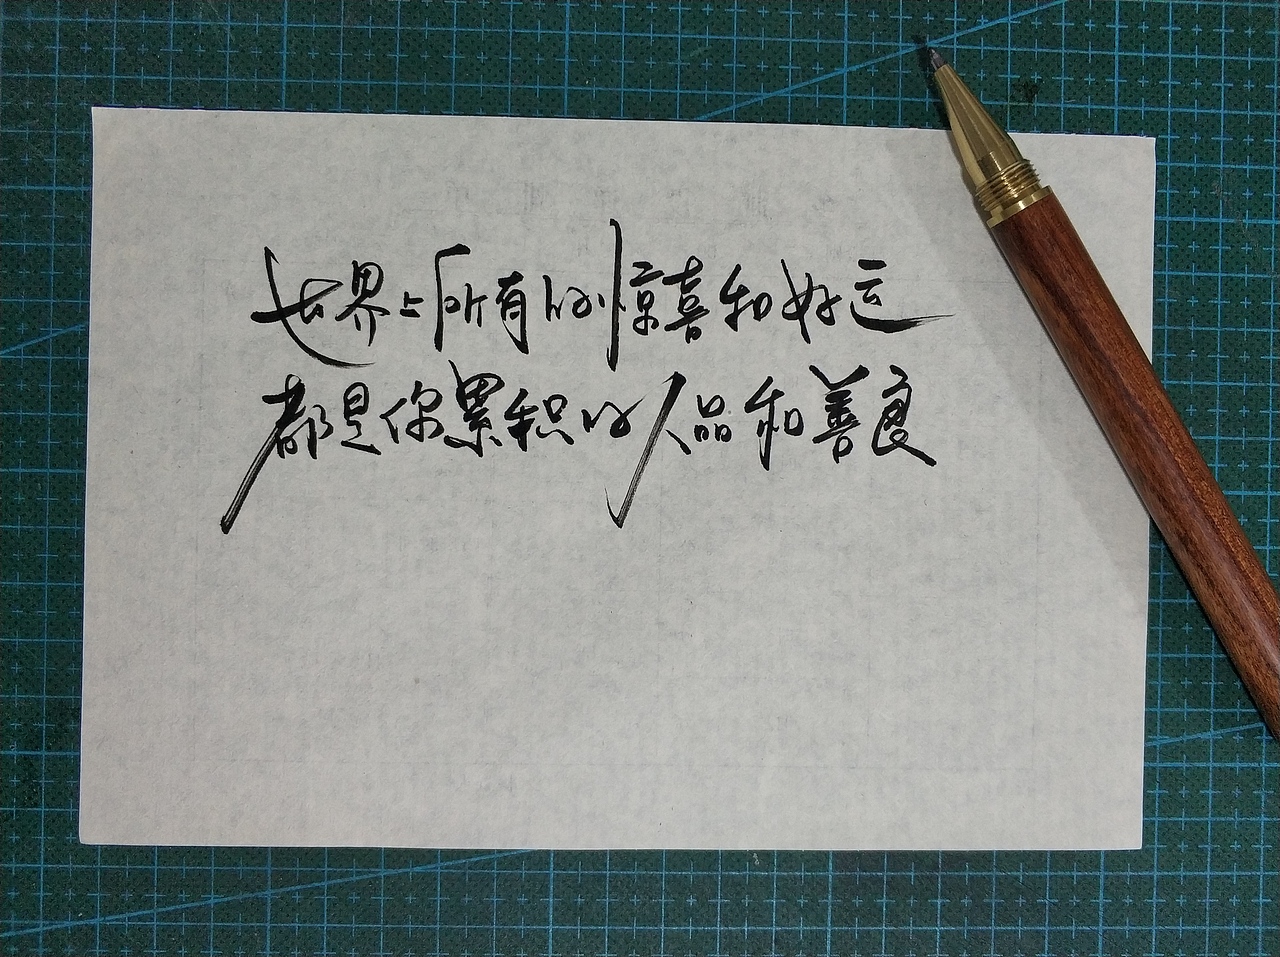 世界上所有的惊喜和好运
都是你累积的人品和善良